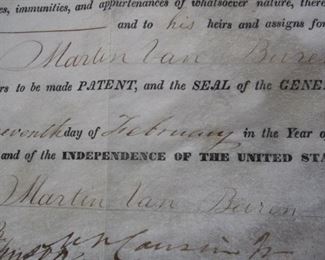 es, immunities, and appurtenances of whatsoever nature, there
and to his heirs and assigns for
Martin Van Buren
rs to be made PATENT, and the SEAL of the GENE
eventh day of February in the Year of
and of the INDEPENDENCE OF THE UNITED STA
Martin Van Buren